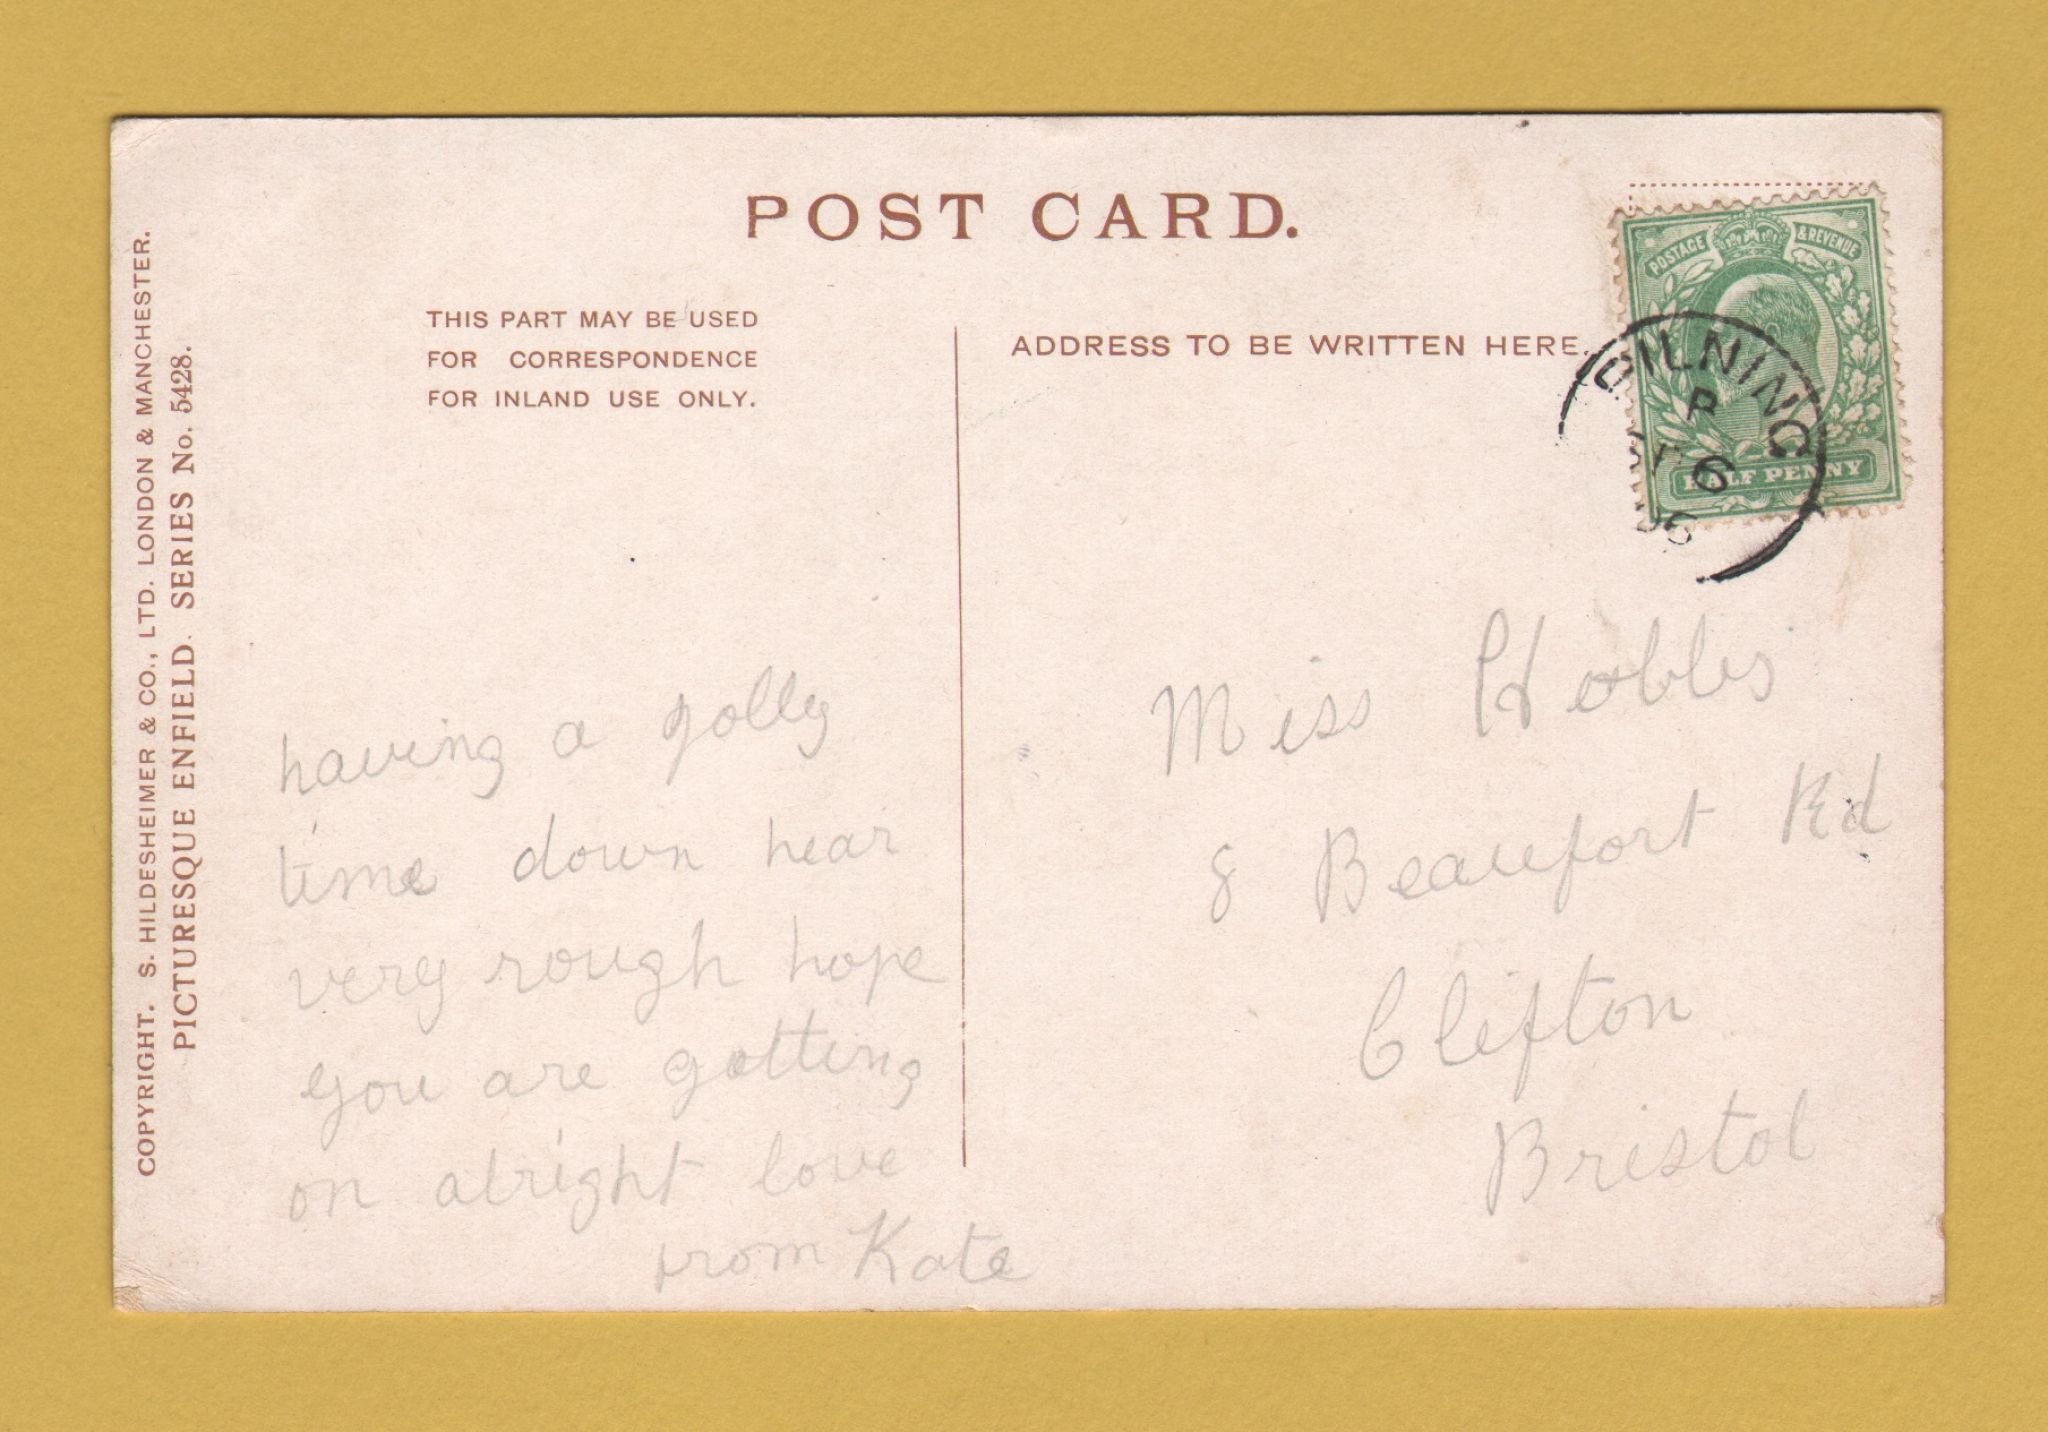 POST CARD.
THIS PART MAY BE USED
FOR CORRESPONDENCE
FOR INLAND USE ONLY.
ADDRESS TO BE WRITTEN HERE.
POSTAGE & REVENUE
HALF PENNY
PILNING
B
6
06
COPYRIGHT. S. HILDESHEIMER & CO., LTD. LONDON & MANCHESTER.
PICTURESQUE ENFIELD. SERIES No. 5428.
having a jolly
time down hear
very rough hope
you are getting
on alright love
from Kate
Miss Hobbs
8 Beaufort Rd
Clifton
Bristol